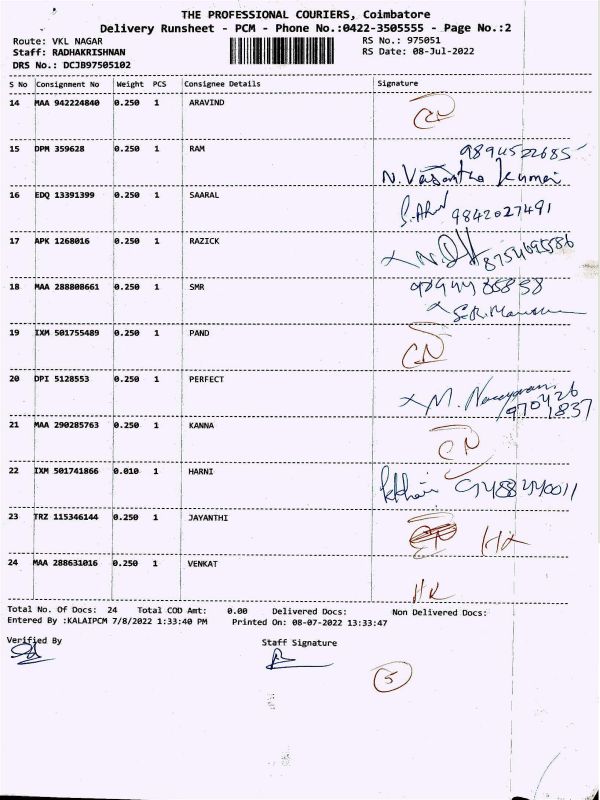 THE PROFESSIONAL COURIERS, Coimbatore
Delivery Runsheet - PCM - Phone No.:0422-3505555 - Page No.:2
Route: VKL NAGAR RS No.: 975051
Staff: RADHAKRISHNAN RS Date: 08-Jul-2022
DRS No.: DCJB97505102
S No Consignment No Weight PCS Consignee Details Signature
14 MAA 942224840 0.250 1 ARAVIND CN
15 DPM 359628 0.250 1 RAM 9894522685
N. Vasantha Kumar
16 EDQ 13391399 0.250 1 SAARAL 9842027491
17 APK 1268016 0.250 1 RAZICK
18 MAA 288808661 0.250 1 SMR
19 IXM 501755489 0.250 1 PAND CN
20 DPI 5128553 0.250 1 PERFECT x M. Narayanan
970426
1837
21 MAA 290285763 0.250 1 KANNA CN
22 IXM 501741866 0.010 1 HARNI 9488440011
23 TRZ 115346144 0.250 1 JAYANTHI
24 MAA 288631016 0.250 1 VENKAT
Total No. Of Docs: 24 Total COD Amt: 0.00 Delivered Docs: Non Delivered Docs:
Entered By :KALAIPCM 7/8/2022 1:33:40 PM Printed On: 08-07-2022 13:33:47
Verified By Staff Signature
5